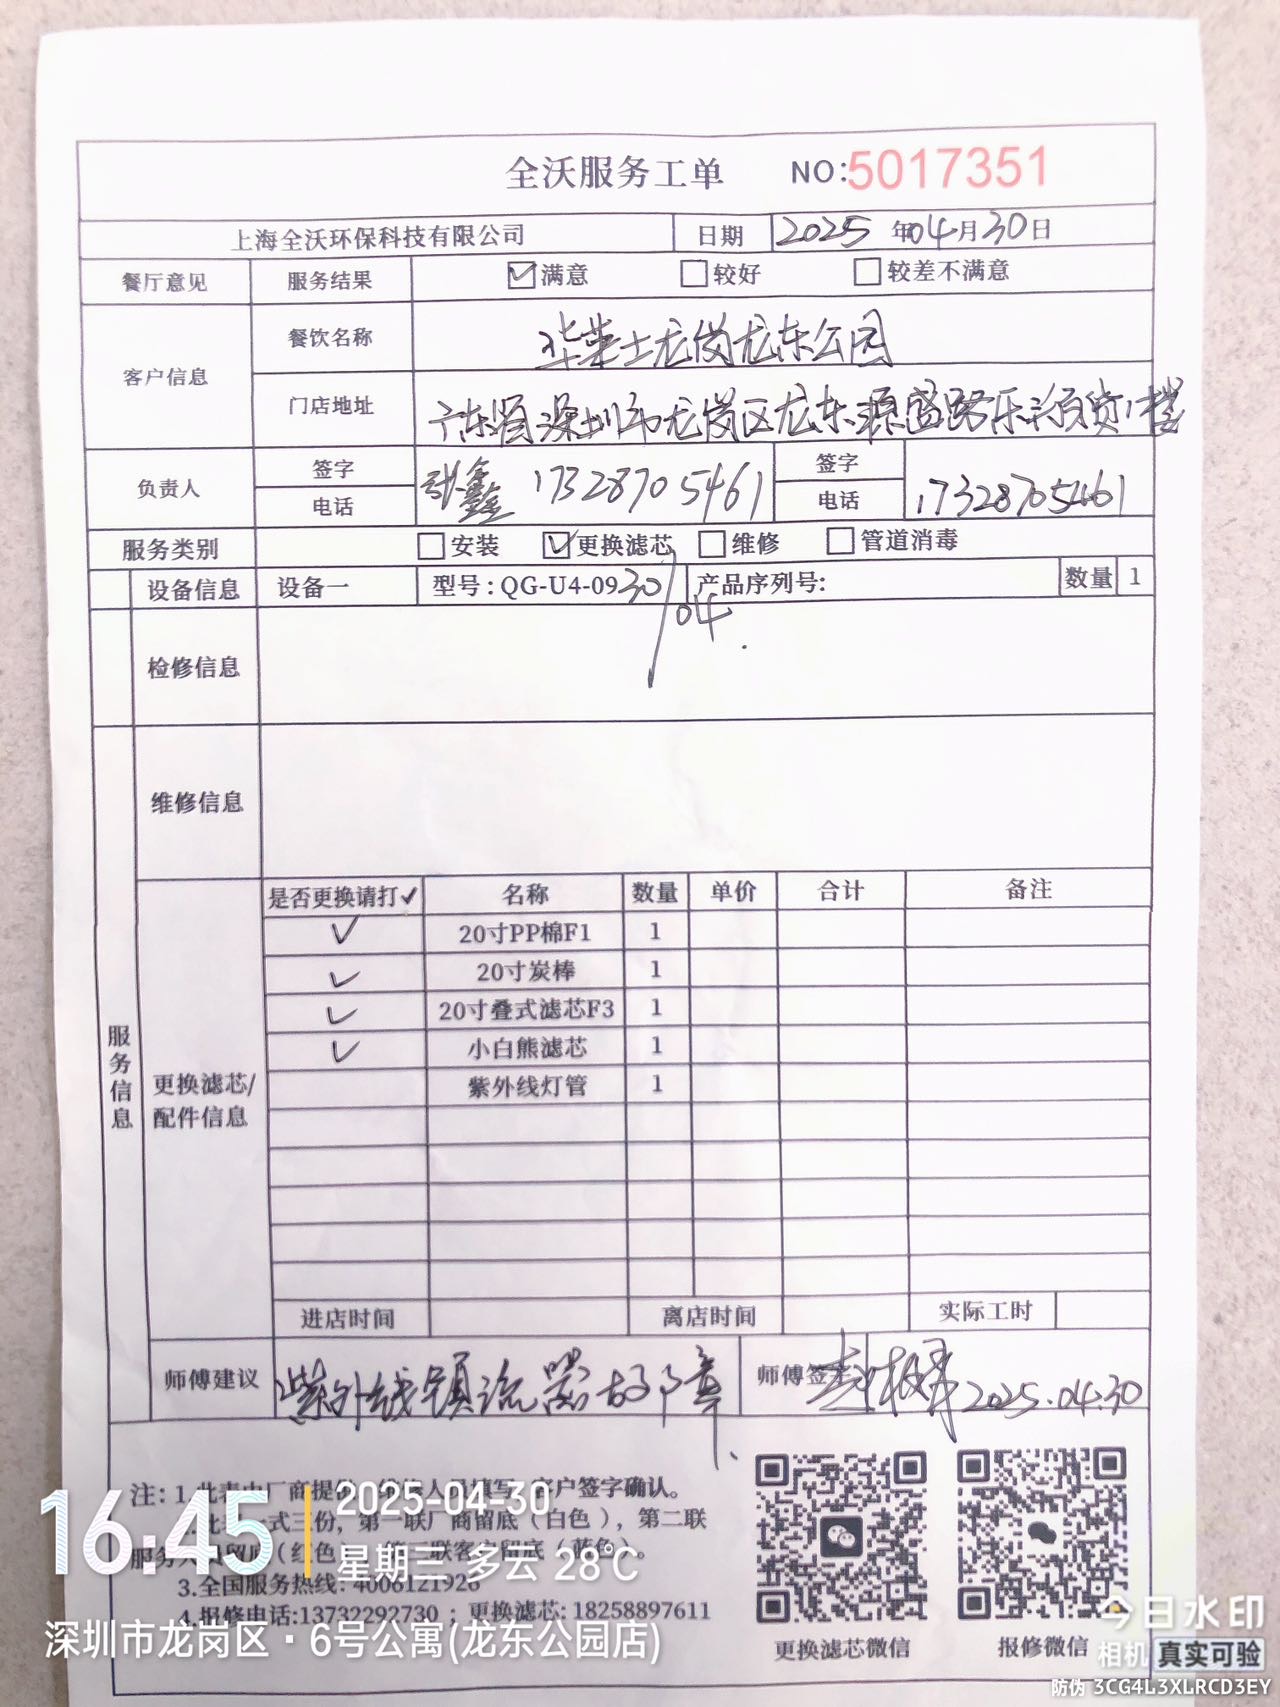 全沃服务工单 NO:5017351
上海全沃环保科技有限公司 日期 2025年04月30日
餐厅意见 服务结果 ☑满意 □较好 □较差不满意
客户信息 餐饮名称 华莱士龙岗龙东公园
门店地址 广东省深圳市龙岗区龙东源盛路乐 1楼
负责人 签字 张鑫 17328705461 签字
电话 电话 17328705461
服务类别 □安装 ☑更换滤芯 □维修 □管道消毒
设备信息 设备一 型号:QG-U4-09 产品序列号: 数量 1
30/04.
检修信息
维修信息
服务信息
更换滤芯/配件信息
是否更换请打✓ 名称 数量 单价 合计 备注
✓ 20寸PP棉F1 1
✓ 20寸炭棒 1
✓ 20寸叠式滤芯F3 1
✓ 小白熊滤芯 1
紫外线灯管 1
进店时间 离店时间 实际工时
师傅建议 紫外线镇流器故障. 师傅签 2025.04.30
注: 1.此表由厂商提供 人员填写 客户签字确认。
式三份, 第一联厂商留底(白色), 第二联
服务 留底(红色) 联客户留底(蓝色)。
3.全国服务热线: 4008121928
4.报修电话:13732292730 ; 更换滤芯: 18258897611
更换滤芯微信 报修微信
16:45 2025-04-30
星期三 多云 28℃
深圳市龙岗区·6号公寓(龙东公园店)
今日水印
相机 真实可验
防伪 3CG4L3XLRCD3EY